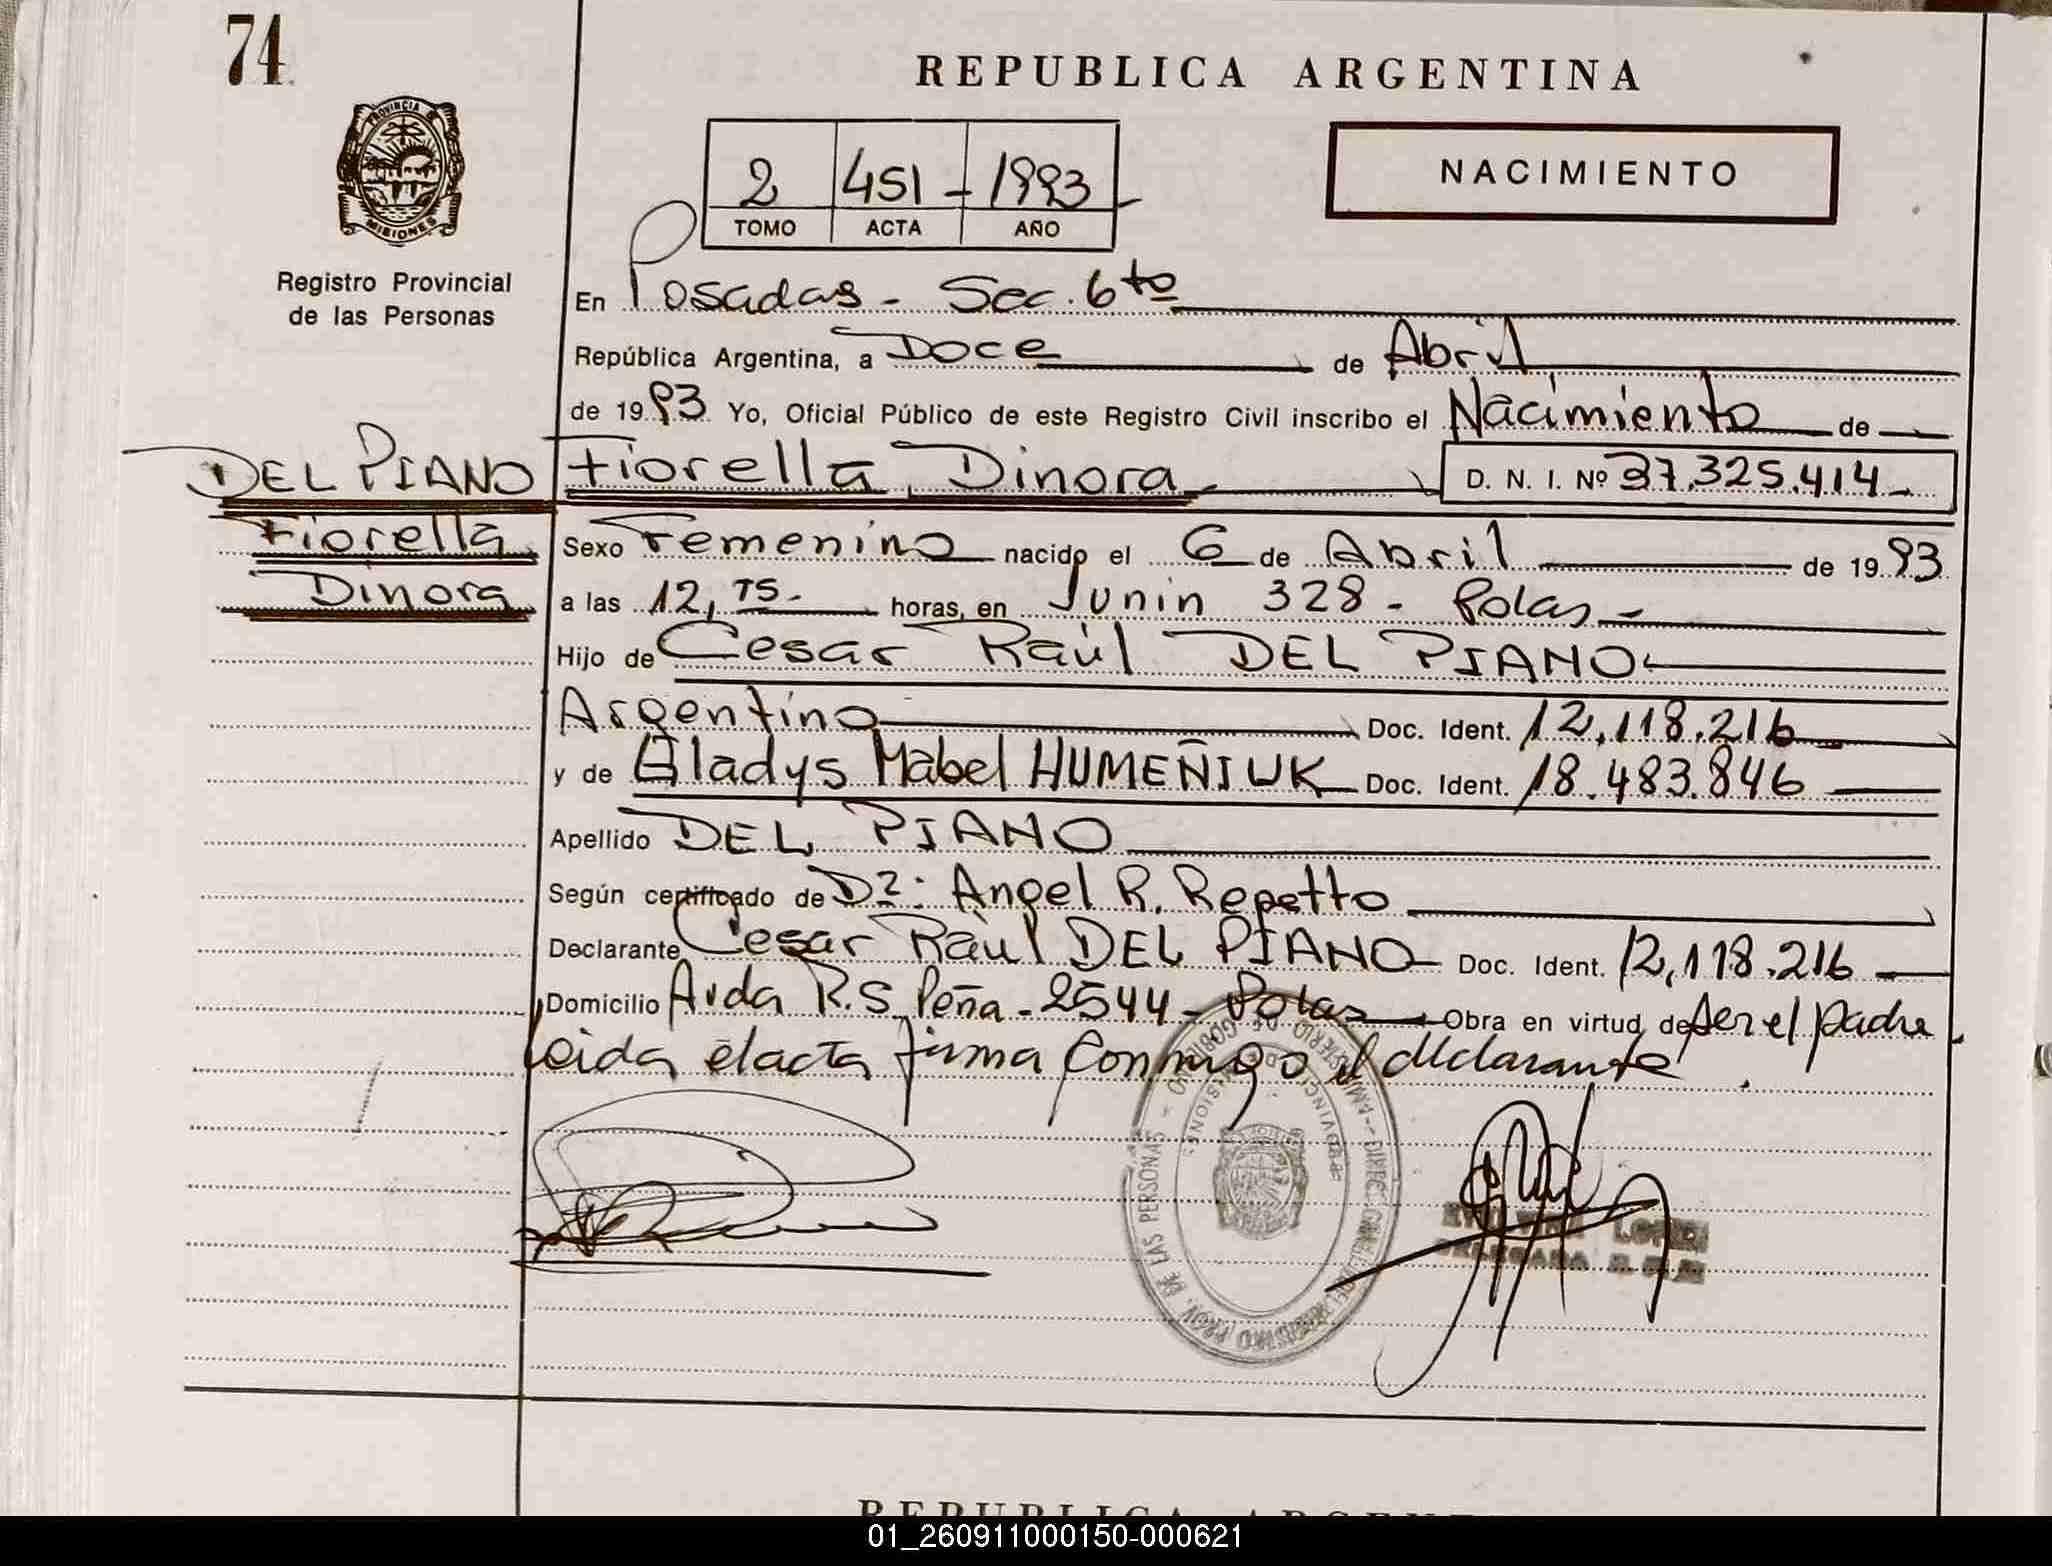 74
REPUBLICA ARGENTINA
PROVINCIA DE MISIONES
2 451 - 1993
TOMO ACTA AÑO
NACIMIENTO
Registro Provincial
de las Personas
En Posadas - Sec. 6to
República Argentina, a Doce de Abril
de 1993 Yo, Oficial Público de este Registro Civil inscribo el Nacimiento de
DEL PIANO Fiorella Dinora D. N. I. Nº 37.325.414
Fiorella
Dinora
Sexo Femenino nacido el 6 de Abril de 1993
a las 12, horas, en Junin 328 - Pdas -
Hijo de Cesar Raúl DEL PIANO
Argentino Doc. Ident. 12.118.216
y de Gladys Mabel HUMEÑIUK Doc. Ident. 18.483.846
Apellido DEL PIANO
Según certificado de Dr: Angel R. Repetto
Declarante Cesar Raùl DEL PIANO Doc. Ident. 12.118.216
Domicilio Avda R.S. Peña - 2544 - Pdas Obra en virtud de ser el padre
Leida el acta firma conmigo el declarante.
REPUBLICA ARGENT
01_260911000150-000621